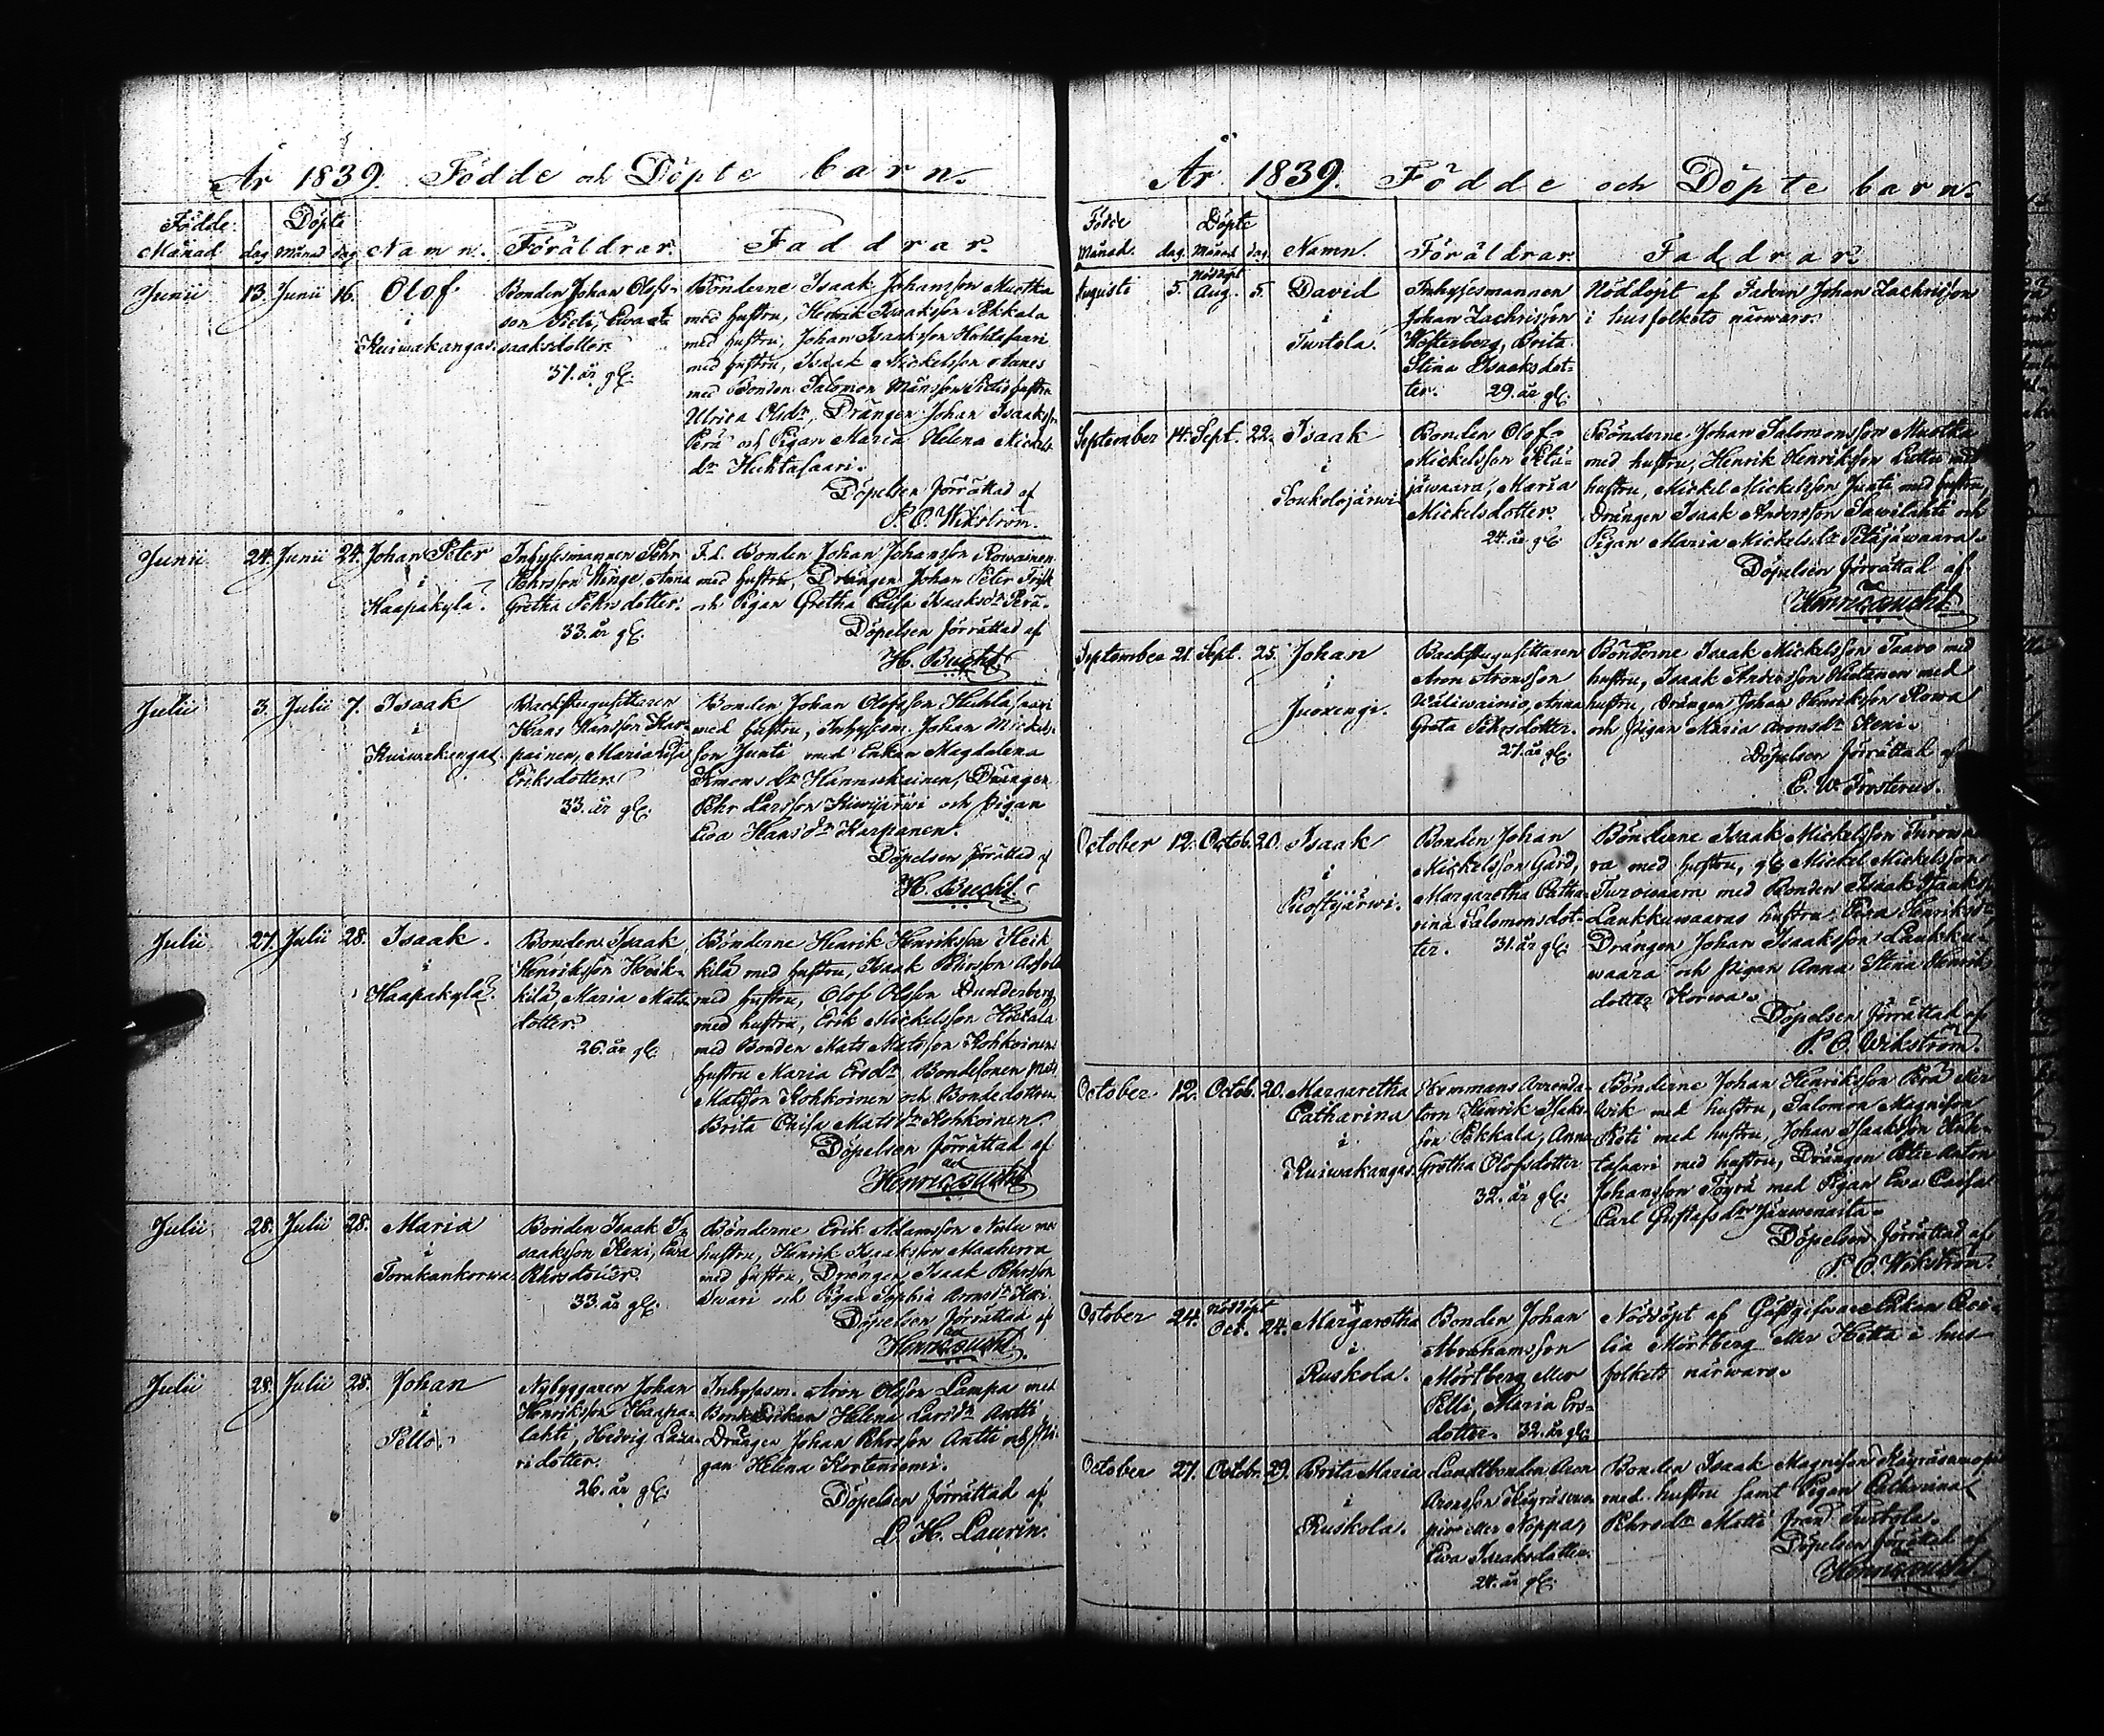 År 1839. Födde och Döpte barn.
Födde Döpte
Månad dag Månad dag Namn. Föräldrar. Faddrar.
Junii 13. Junii 16. Olof
i
Kuiwakangas.
Bonden Johan Olofs-
son Pieti, Ewa I-
saaksdotter.
37. år gl.
Bönderne Isaak Johansson Mustka
med hustru, Henrik Isaaksson Pekkala
med hustru, Johan Isaaksson Huhtasaari
med hustru, Isaak Mickelsson
med Bonden Salomon Månsson hustru
Ulrica Olsdr, Drängen Johan Isaaksson
Perä och Pigan Maria Helena Mickels
dr Huhtasaari.
Döpelsen förrättad af
P. O. Wikström.
Junii 24. Junii 24. Johan Peter
i
Haapakylä.
Inhysesmannen Pehr
Pehrsson Winge, Anna
Gretha Pehrsdotter.
33. år gl.
F.d. Bonden Johan Johansson Rowainen
med hustru, Drängen Johan Peter Frisk
och Pigan Gretha Caisa Isaaksdr Perä.
Döpelsen förrättad af
H. Bucht.
Julii 3. Julii 7. Isaak
i
Kuiwakangas.
Backstugusittaren
Hans Hansson Kar-
painen, Maria Lisa
Eriksdotter.
33. år gl.
Bonden Johan Olofsson Huhtasaari
med hustru, Inhysesm. Johan Mickels-
son Junti med Enkan Magdalena
Simonsdr Hannukainen, Drängen
Pehr Larsson Kiwijärwi och Pigan
Ewa Hansdr Karpanen.
Döpelsen förrättad af
H. Bucht.
Julii 27. Julii 28. Isaak.
i
Haapakylä.
Bonden Isaak
Henriksson Heik-
kilä, Maria Mats-
dotter.
26. år gl.
Bönderne Henrik Henriksson Heik
kilä med hustru, Isaak Pehrsson
med hustru, Olof Olsson Dunderberg
med hustru, Erik Mickelsson
med Bonden Mats Matsson Kohkoinen
hustru Maria Ersdr Bondesonen Mats
Matsson Kohkoinen och Bondedottren
Brita Caisa Matsdr Kohkoinen.
Döpelsen förrättad af
Henric Bucht
Julii 28. Julii 28. Maria
i
Torakankorwa.
Bonden Isaak I-
saaksson Kexi, Ewa
Pehrsdotter.
33. år gl.
Bönderne Erik Adamsson Nielu med
hustru, Henrik Isaaksson Maaherra
med hustru, Drängen Isaak Pehrsson
Iwari och Pigan Sophia Aronsdr Kexi.
Döpelsen förrättad af
Henric Bucht.
Julii 28. Julii 28. Johan
i
Pello.
Nybyggaren Johan
Henriksson Haapa-
lahti, Hedvig Laza-
ridotter.
26. år gl.
Inhysesm. Aron Olsson Lampa med
Helena Larsdr Antti
Drängen Johan Pehrsson Antti och Pi-
gan Helena Korteniemi.
Döpelsen förrättad af
L. H. Laurin.
År 1839. Födde och Döpte barn.
Födde Döpte
Månad. dag. Månad dag. Namn. Föräldrar. Faddrar.
Augusti 5. Nöddöpt Aug. 5. David
i
Turtola.
Inhysesmannen
Johan Zachrisson
Westerberg, Brita
Stina Isaaksdot-
ter. 29. år gl.
Nöddöpt af Fadern Johan Zachrisson
i husfolkets närwaro.
September 14. Sept. 22. Isaak
i
Soukolojärwi
Bonden Olof
Mickelsson Pelä-
jäwaara, Maria
Mickelsdotter.
24. år gl.
Bönderne Johan Salomonsson Mustka
med hustru, Henrik Henriksson med
hustru, Mickel Mickelsson Junti med hustru,
Drängen Isaak Andersson Sawilahti och
Pigan Maria Mickelsdr Peläjäwaara.
Döpelsen förrättad af
Henric Bucht.
September 21. Sept. 25. Johan
i
Juoxengi.
Backstugusittaren
Aron Aronsson
Wäliwainio, Anna
Greta Pehrsdotter.
27. år gl.
Bönderne Isaak Mickelsson Taavo med
hustru, Isaak Andersson Hietanen med
hustru, Drängen Johan Henriksson Rowa
och Pigan Maria Aronsdr Kexi.
Döpelsen förrättad af
E. W. Frosterus.
October 12. Octob. 20. Isaak
i
Ruostijärwi.
Bonden Johan
Mickelsson Gård,
Margaretha Catha-
rina Salomonsdot-
ter. 31. år gl.
Bönderne Isaak Mickelsson Turowaa
ra med hustru, gl. Mickel Mickelsson
Turowaara med Bonden Isaak Isaaksson
Laukkuwaaras hustru Ewa Henriksdr
Drängen Johan Isaaksson Laukku-
waara och Pigan Anna Stina Henriks
dotter Korwa.
Döpelsen förrättad af
P. O. Wikström.
October 12. Octob. 20. Margaretha
Catharina
i
Kuiwakangas.
Hemmans Arrenda-
torn Henrik Isaks-
son Pekkala, Anna
Gretha Olofsdotter
32. år gl.
Bönderne Johan Henriksson Perä eller
Wik med hustru, Salomon Magnison
Pieti med hustru, Johan Isaaksson Huh-
tasaari med hustru, Drängen Peter Anton
Johansson Töyrä med Pigan Ewa Caisa
Carl Gustafsdr
Döpelsen förrättad af
P. O. Wikström.
October 24. nöddöpt Oct. 24. † Margaretha
i
Ruskola.
Bonden Johan
Abrahamsson
Mörtberg eller
Pelli, Maria Ers-
dotter. 32. år gl.
Nöddöpt af Gästgifware Enkan Ceci-
lia Mörtberg eller Hietta i hus-
folkets närwaro.
October 27. Octobr. 29. Brita Maria
i
Ruskola.
Landtbonden Aron
Aronsson
pio eller Noppa,
Ewa Isaaksdotter.
24. år gl.
Bonden Isaak Magnison
med hustru samt Pigan Catharina
Pehrsdr Matti från Turtola.
Döpelsen förrättad af
Henric Bucht.